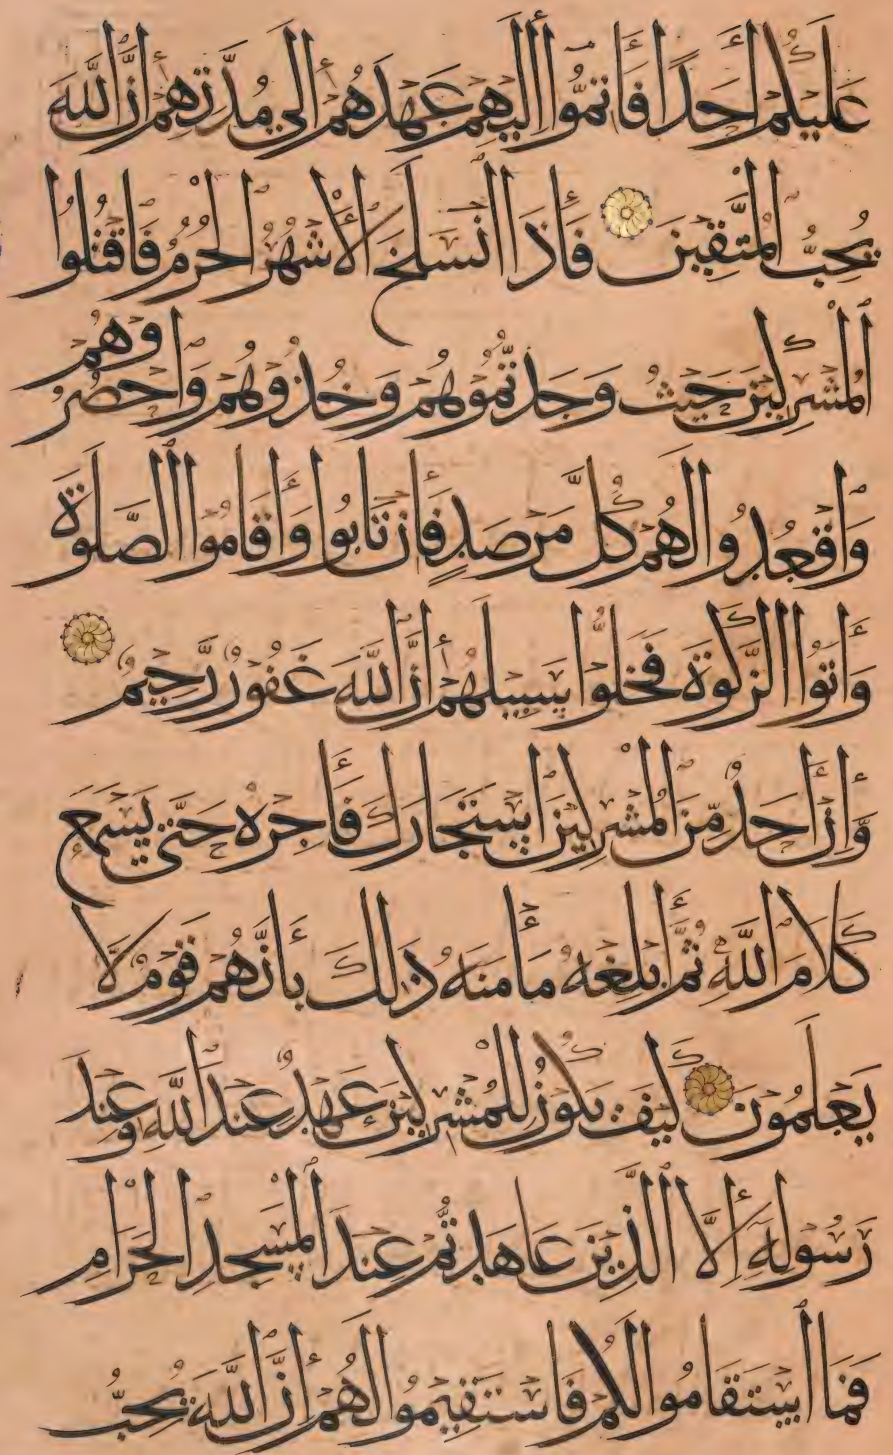 عَلَيْكُمْ أَحَدًا فَأَتِمُّوا إِلَيْهِمْ عَهْدَهُمْ إِلَى مُدَّتِهِمْ إِنَّ اللَّهَ
يُحِبُّ الْمُتَّقِينَ فَإِذَا انْسَلَخَ الْأَشْهُرُ الْحُرُمُ فَاقْتُلُوا
الْمُشْرِكِينَ حَيْثُ وَجَدْتُمُوهُمْ وَخُذُوهُمْ وَاحْصُرُوهُمْ
وَاقْعُدُوا لَهُمْ كُلَّ مَرْصَدٍ فَإِنْ تَابُوا وَأَقَامُوا الصَّلَوةَ
وَآتَوُا الزَّكَوةَ فَخَلُّوا سَبِيلَهُمْ إِنَّ اللَّهَ غَفُورٌ رَّحِيمٌ
وَإِنْ أَحَدٌ مِّنَ الْمُشْرِكِينَ اسْتَجَارَكَ فَأَجِرْهُ حَتَّى يَسْمَعَ
كَلَامَ اللَّهِ ثُمَّ أَبْلِغْهُ مَأْمَنَهُ ذَلِكَ بِأَنَّهُمْ قَوْمٌ لَّا
يَعْلَمُونَ كَيْفَ يَكُونُ لِلْمُشْرِكِينَ عَهْدٌ عِنْدَ اللَّهِ وَعِنْدَ
رَسُولِهِ إِلَّا الَّذِينَ عَاهَدْتُمْ عِنْدَ الْمَسْجِدِ الْحَرَامِ
فَمَا اسْتَقَامُوا لَكُمْ فَاسْتَقِيمُوا لَهُمْ إِنَّ اللَّهَ يُحِبُّ